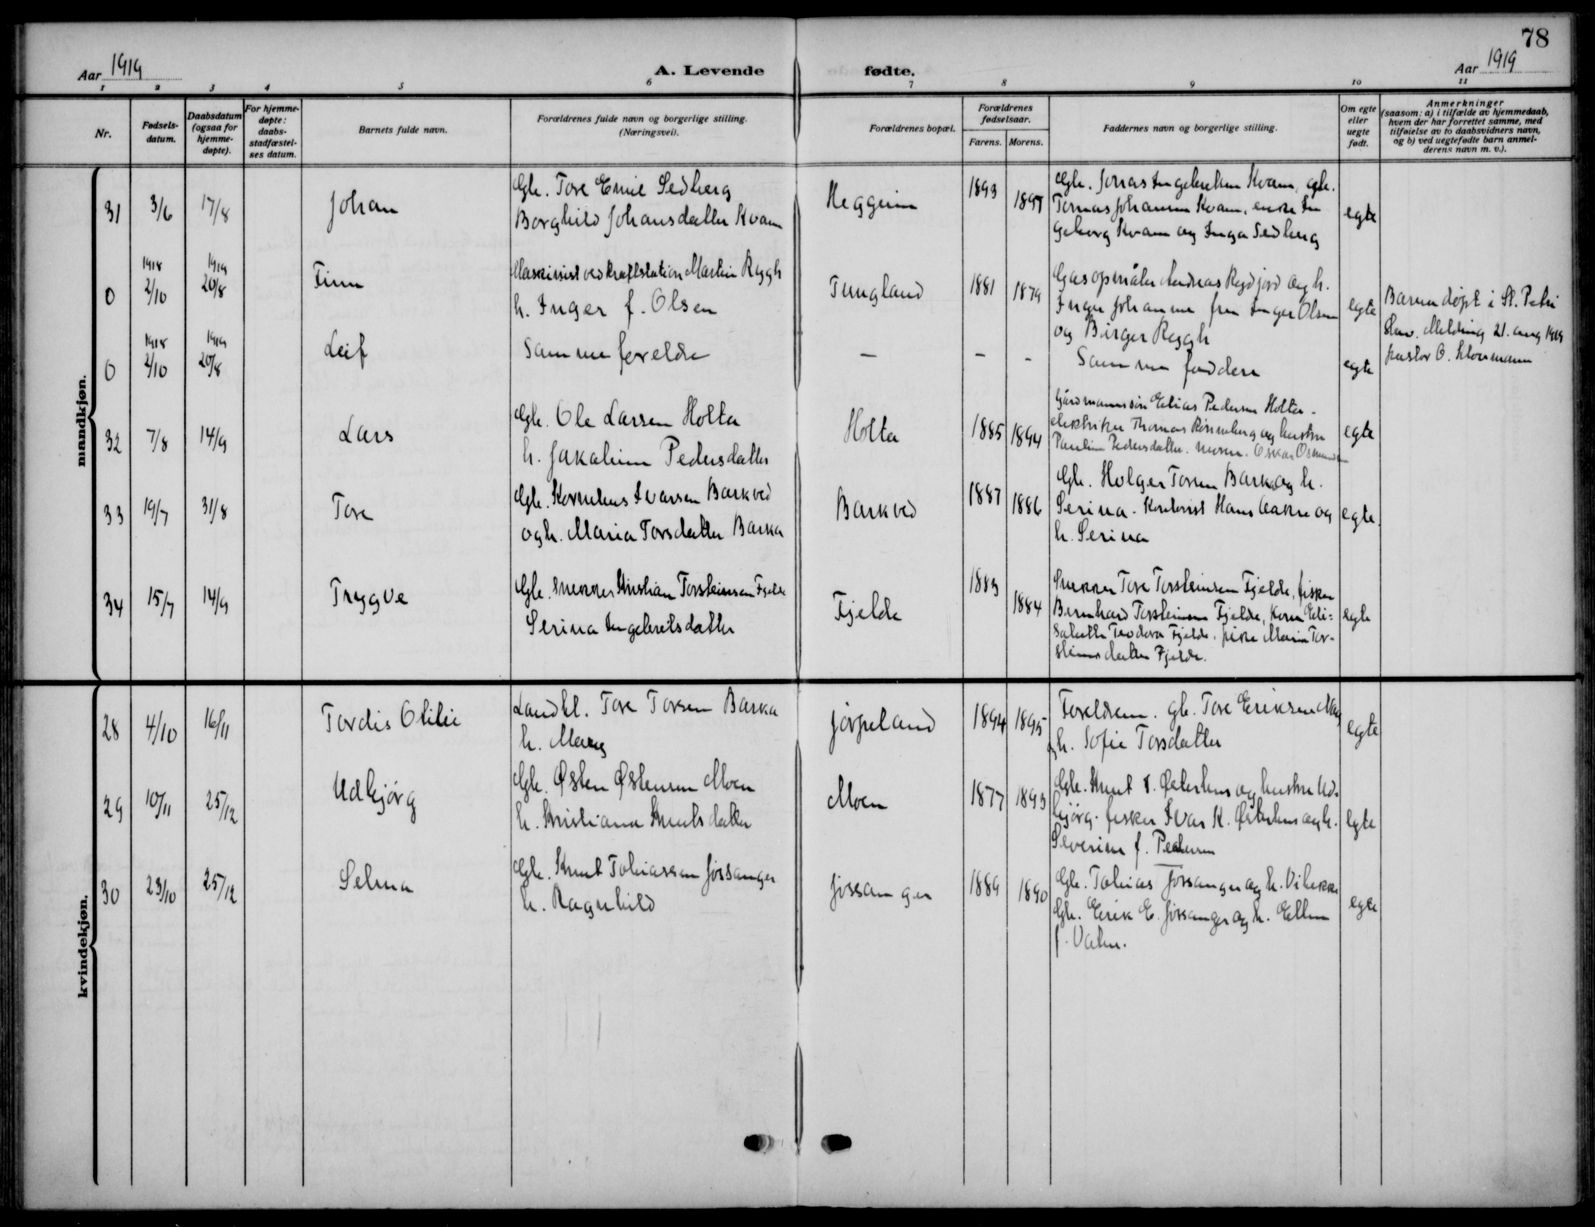 78
Aar 1919
A. Levende fødte.
Aar 1919
1 2 3 4 5 6 7 8 9 10 11
Nr.
Fødsels-
datum.
Daabsdatum
(ogsaa for
hjemme-
døpte).
For hjemme-
døpte:
daabs-
stadfæstel-
ses datum.
Barnets fulde navn.
Forældrenes fulde navn og borgerlige stilling.
(Næringsvei).
Forældrenes bopæl.
Forældrenes
fødselsaar.
Farens. Morens.
Faddernes navn og borgerlige stilling.
Om egte
eller
uegte
født.
Anmerkninger
(saasom: a) i tilfælde av hjemmedaab,
hvem der har forrettet samme, med
tilføielse av to daabsvidners navn,
og b) ved uegtefødte barn anmel-
derens navn m. v.).
mandkjøn.
31 3/6 17/8 Johan
Gbr. Tore Emil Sedberg
Borghild Johansdatter Kvam
Heggeim 1893 1897
Gbr. Jonas Ingebretsen Kvam, gbr.
Tomas Johannsen Kvam, enke In
geborg Kvam og Inga Sedberg
egte
0 1918 2/10 1919 20/8 Finn
Maskinist ved kraftstation Martin Rygh
h. Inger f. Olsen
Tungland 1881 1879
Andreas og h.
Inger Johanne fru Inger Olsen
og Birger Rygh
egte
Barnet døpt i St. Petri
Stav. Melding 21. aug 1919
pastor O.
0 1918 2/10 1919 20/8 Leif
Samme forelde
— - -
Samme faddere
egte
32 7/8 14/9 Lars
Gbr. Ole Larsen Holta
h. Jakobine Pedersdatter
Holta 1885 1894
Gårdmannssøn Elias Pedersen Holta -
elektriker Thomas og hustru
Pauline Pedersdatter. Oskar
egte
33 19/7 31/8 Tore
Gbr. Kornelius Ivarsen Barkved
og h. Maria Torsdatter Barka
Barkved 1887 1886
Gbr. Holger Torsen Barka og h.
Serina. Kontorist Hans og
h. Serina
egte.
34 15/7 14/9 Trygve
Gbr. snekker Kristian Torsteinsen Fjelde
Serina Ingebretsdatter
Fjelde 1883 1884
Snekker Tore Torsteinsen Fjelde, fisker
Bernhard Torsteinsen Fjelde, Kona Eli-
sabeth Teodora Fjelde. pike Marie Tor-
steinsdatter Fjelde.
egte
kvindekjøn.
28 4/10 16/11 Tordis Otilie
Landhl. Tore Torsen Barka
h. Mary
Jørpeland 1894 1895
Foreldrene. gb. Tore Eriksen
og h. Sofie Torsdatter
egte
29 10/11 25/12 Udbjørg
Gbr. Østen Østensen Moen
h. Kristiana Knutsdatter
Moen 1877 1893
Gbr. Knut I. Østerhus og hustru Ud-
bjørg. fisker Ivar K. Østerhus og h.
Severine f. Pedersen
egte
30 23/10 25/12 Selma
Gbr. Knut Tobiassen Jøssanger
h. Ragnhild
Jøssanger 1889 1890
Gbr. Tobias Jøssanger og h. Vibekke
Gbr. Erik E. Jøssanger og h. Ellen
f.
egte